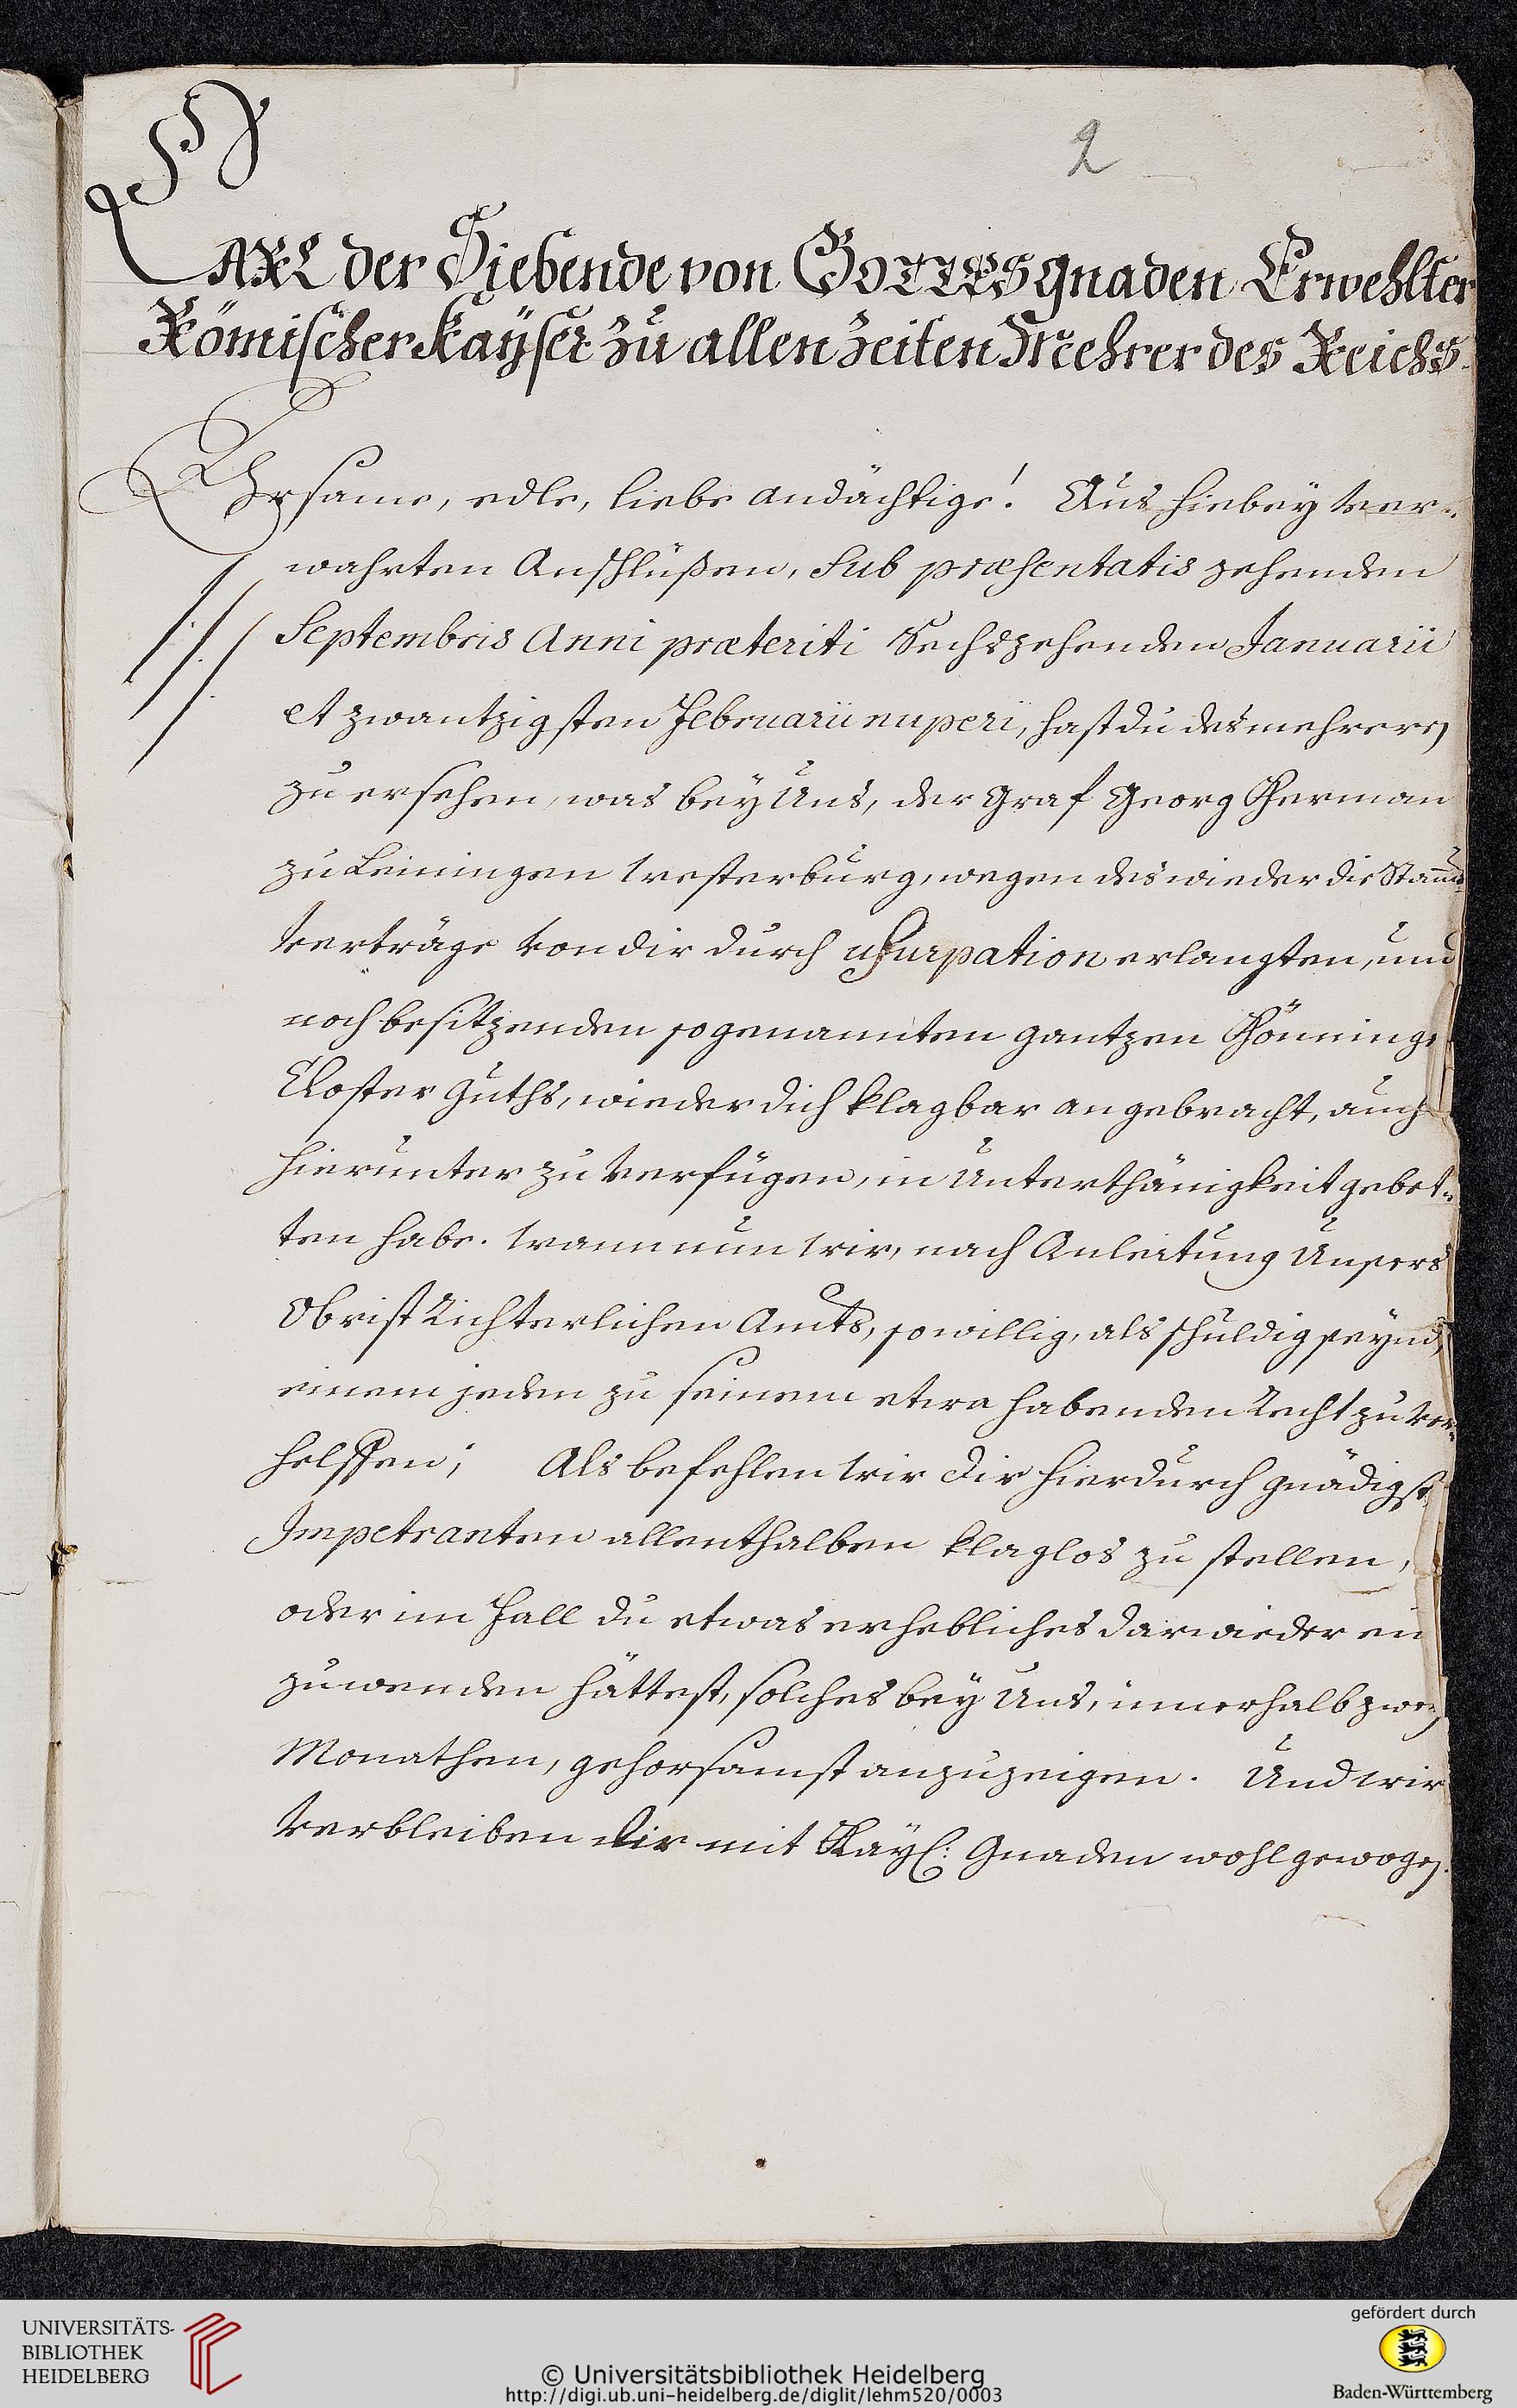 2
CARL der Siebende von GOTTES gnaden Erwehlter
Römischer Kayser zu allen Zeiten Mehrer des Reichs.
Ehrsame, edle, liebe andächtige! Aus hiebey ver-
wahrten Anschlüßen, sub præsentatis zehenden
Septembris Anni præteriti Sechszehenden Januarii
et zwantzigsten Februarii nuperi, hast du des mehrern
zu ersehen, was bey Uns, der Graf Georg Herman
zu Leiningen Westerburg, wegen des wieder die Stamm-
Verträge von dir durch usurpation erlangten, und
noch besitzenden so genannten gantzen Hönninger
Closter Guths, wieder dich klagbar angebracht, auch
hierunter zu verfügen, in Unterthänigkeit gebet-
ten habe. Wann nun Wir, nach Anleitung Unsers
Obrist Richterlichen Amts, so willig, als schuldig seynd,
einem jeden zu seinem etwa habenden Recht zu ver-
helffen; Als befehlen Wir dir hierdurch gnädigst
Impetranten allenthalben klaglos zu stellen,
oder im Fall du etwas erhebliches darwieder ein
zuwenden hättest, solches bey Uns, innerhalb zwey
Monathen, gehorsamst anzuzeigen. Und Wir
verbleiben dir mit Kayl: Gnaden wohlgewogen.
UNIVERSITÄTS-
BIBLIOTHEK
HEIDELBERG
© Universitätsbibliothek Heidelberg
http://digi.ub.uni-heidelberg.de/diglit/lehm520/0003
gefördert durch
Baden-Württemberg